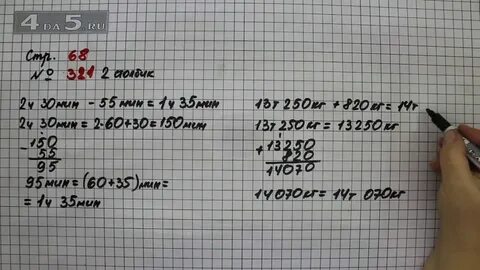 4DA5.RU
Стр. 68
№ 321 2 столбик
2ч 30мин - 55мин = 1ч 35мин
2ч 30мин = 2·60+30=150мин
- 150
55
95
95мин = (60+35)мин =
= 1ч 35мин
13т 250кг + 820кг = 14т
13т 250кг = 13250кг
+ 13250
820
14070
14070кг = 14т 070кг